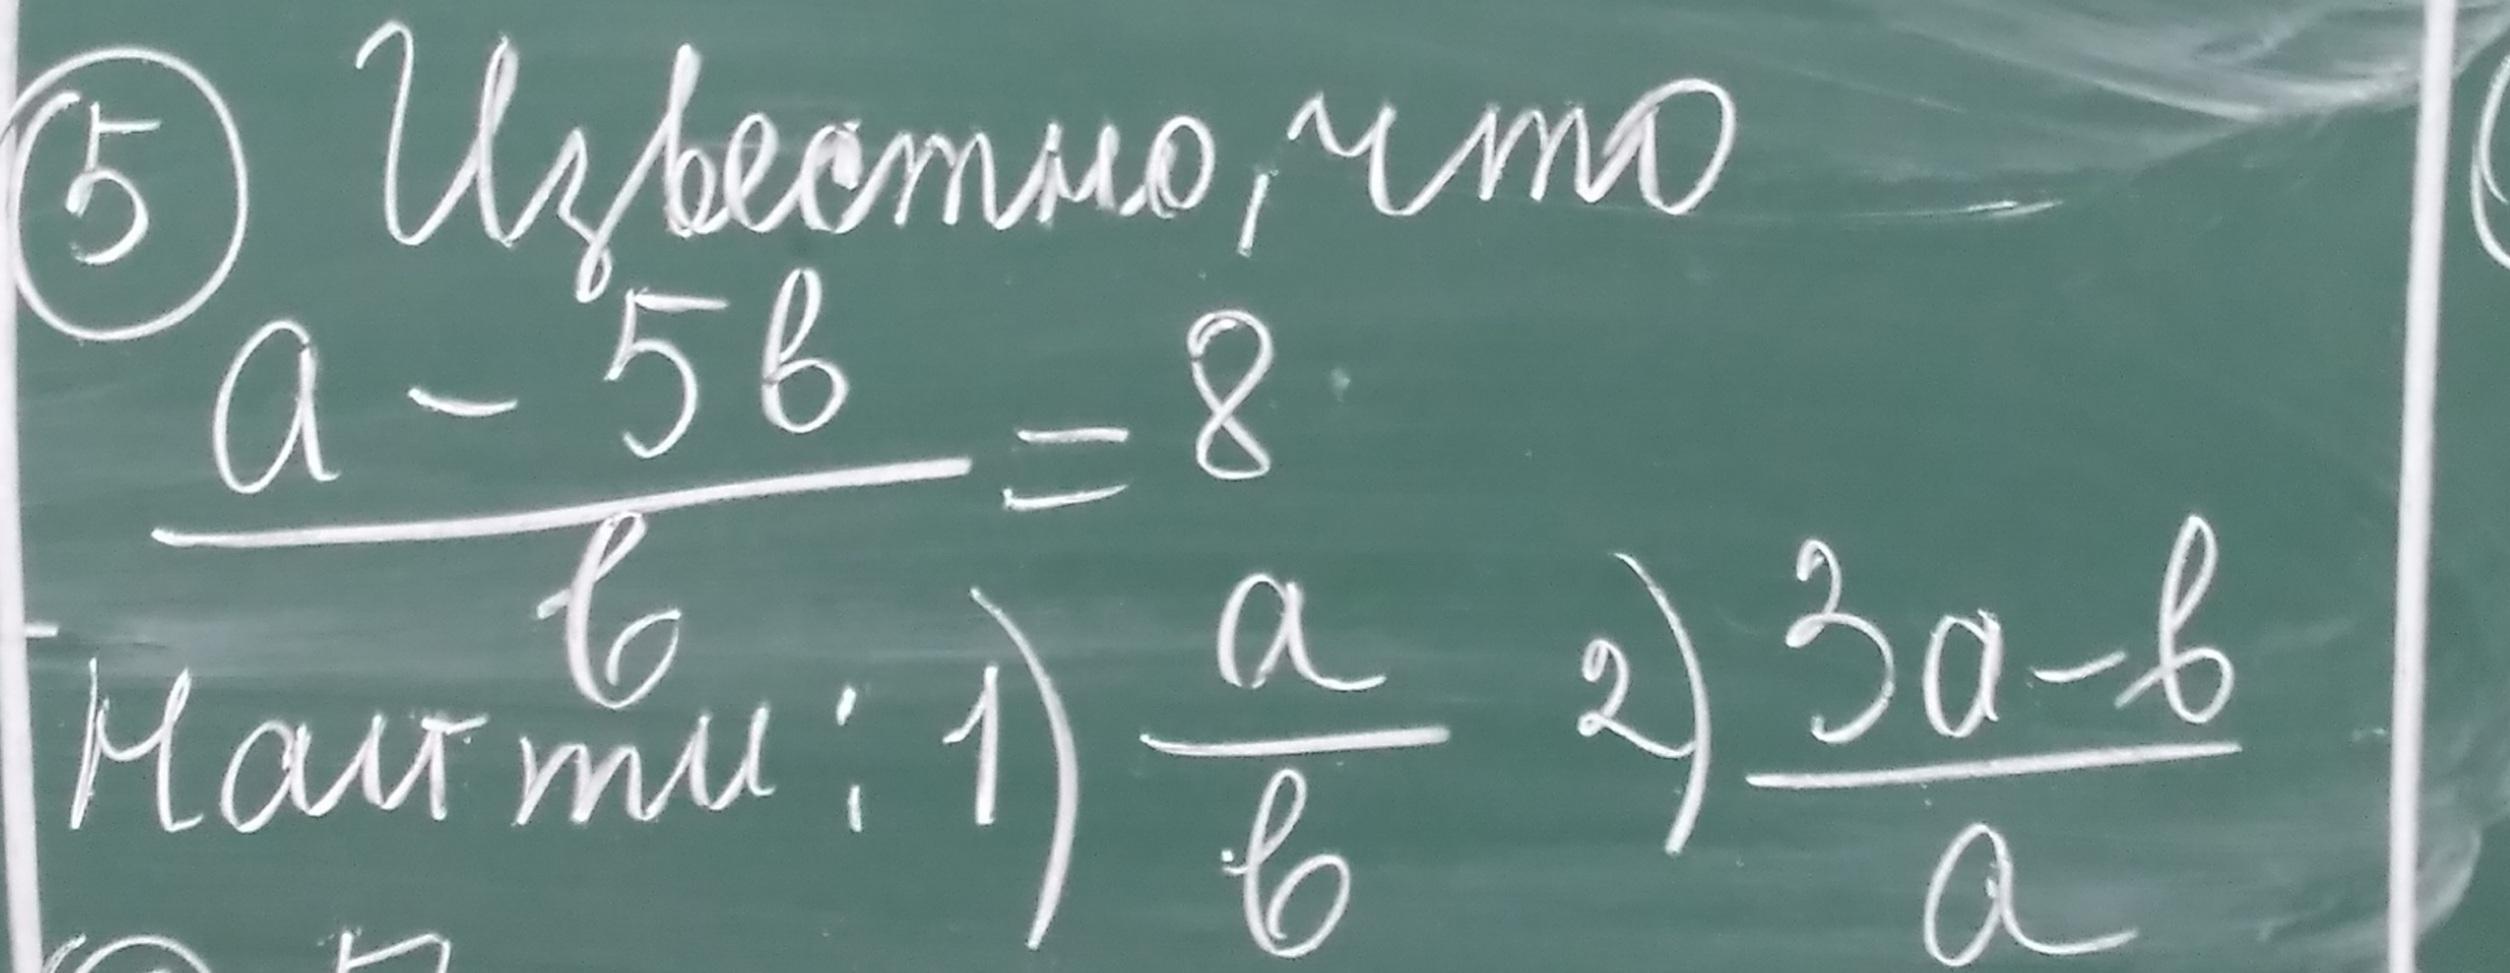 ⑤ Известно, что
a - 5b
/ b = 8
Найти: 1) a/b 2) (3a-b)/a